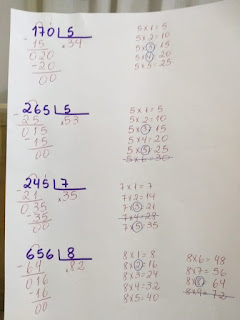 170 5
-15 .34
020
-20
00
5x1=5
5x2=10
5x3=15
5x4=20
5x5=25
265 5
-25 .53
015
-15
00
5x1=5
5x2=10
5x3=15
5x4=20
5x5=25
5x6=30
245 7
-21 .35
035
-35
00
7x1=7
7x2=14
7x3=21
7x4=28
7x5=35
656 8
-64 .82
016
-16
00
8x1=8
8x2=16
8x3=24
8x4=32
8x5=40
8x6=48
8x7=56
8x8=64
8x9=72